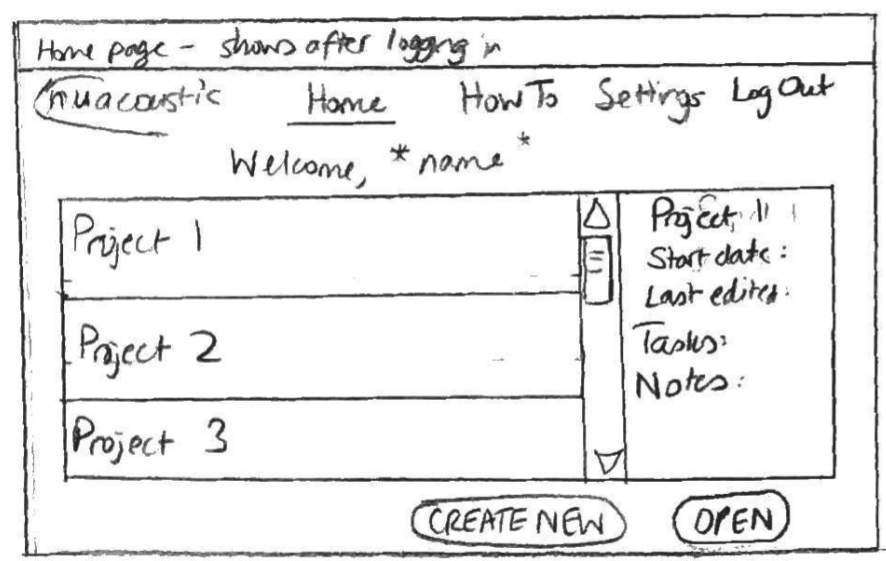 Home page - shows after logging in
nuacoustic Home How To Settings Log Out
Welcome, *name*
Project 1
Project 2
Project 3
Project 1
Start date:
Last edited:
Tasks:
Notes:
CREATE NEW OPEN